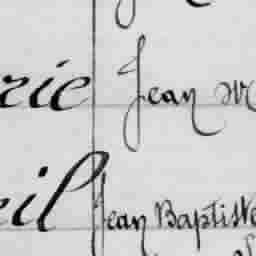 rie Jean
eil Jean Baptiste